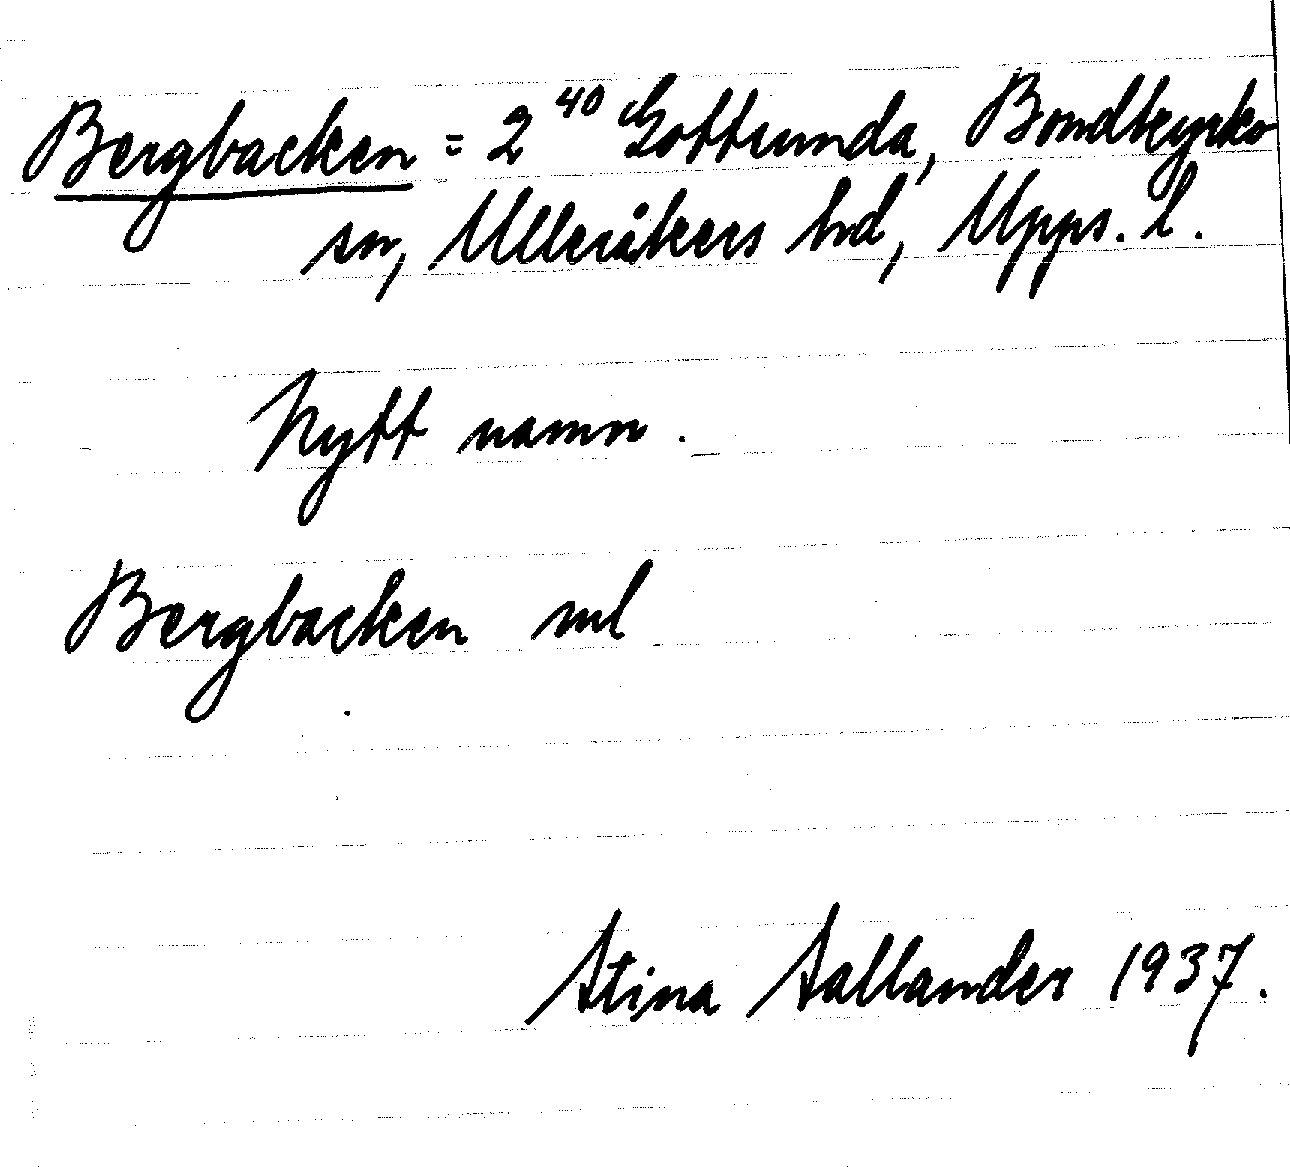 Bergbacken = 2⁴⁰ Gottsunda, Bondkyrko
sn, Ulleråkers hd, Upps. l.
Nytt namn.
Bergbacken ml
Stina Sallander 1937.